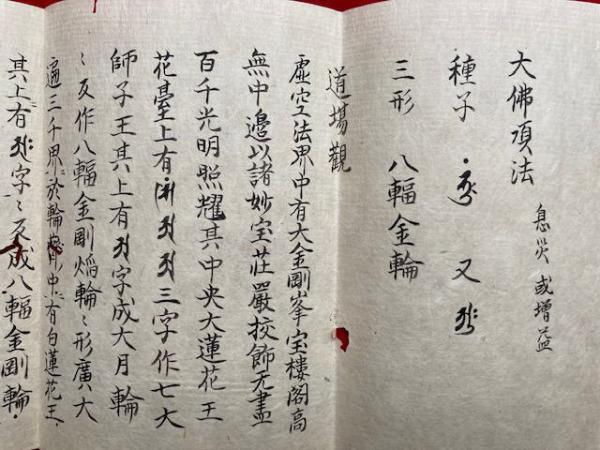 大佛頂法 息災 或増益
種子 又
三形 八輻金輪
道場觀
虚空法界中有大金剛峯宝樓閣高
無中邊以諸妙宝荘嚴挍飾无盡
百千光明照耀其中央大蓮花王
花臺上有 三字作七大
師子王其上有 字成大月輪
〻反作八輻金剛焔輪〻形廣大
遍三千界於輪 中有白蓮花王
其上有 字〻反成八輻金剛輪